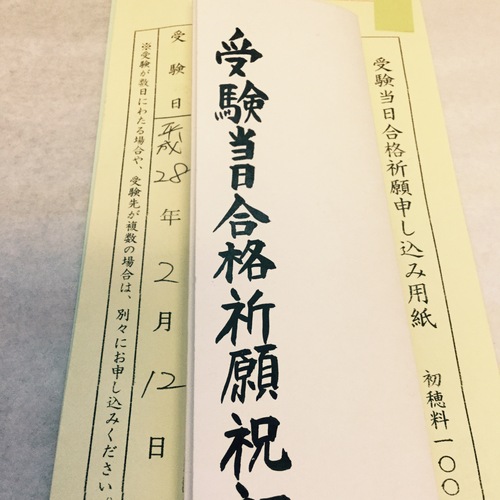 受験当日合格祈願申し込み用紙
初穂料一〇〇
受験当日合格祈願祝
受験日 平成28年2月12日
※受験が数日にわたる場合や、受験先が複数の場合は、別々にお申し込みください。